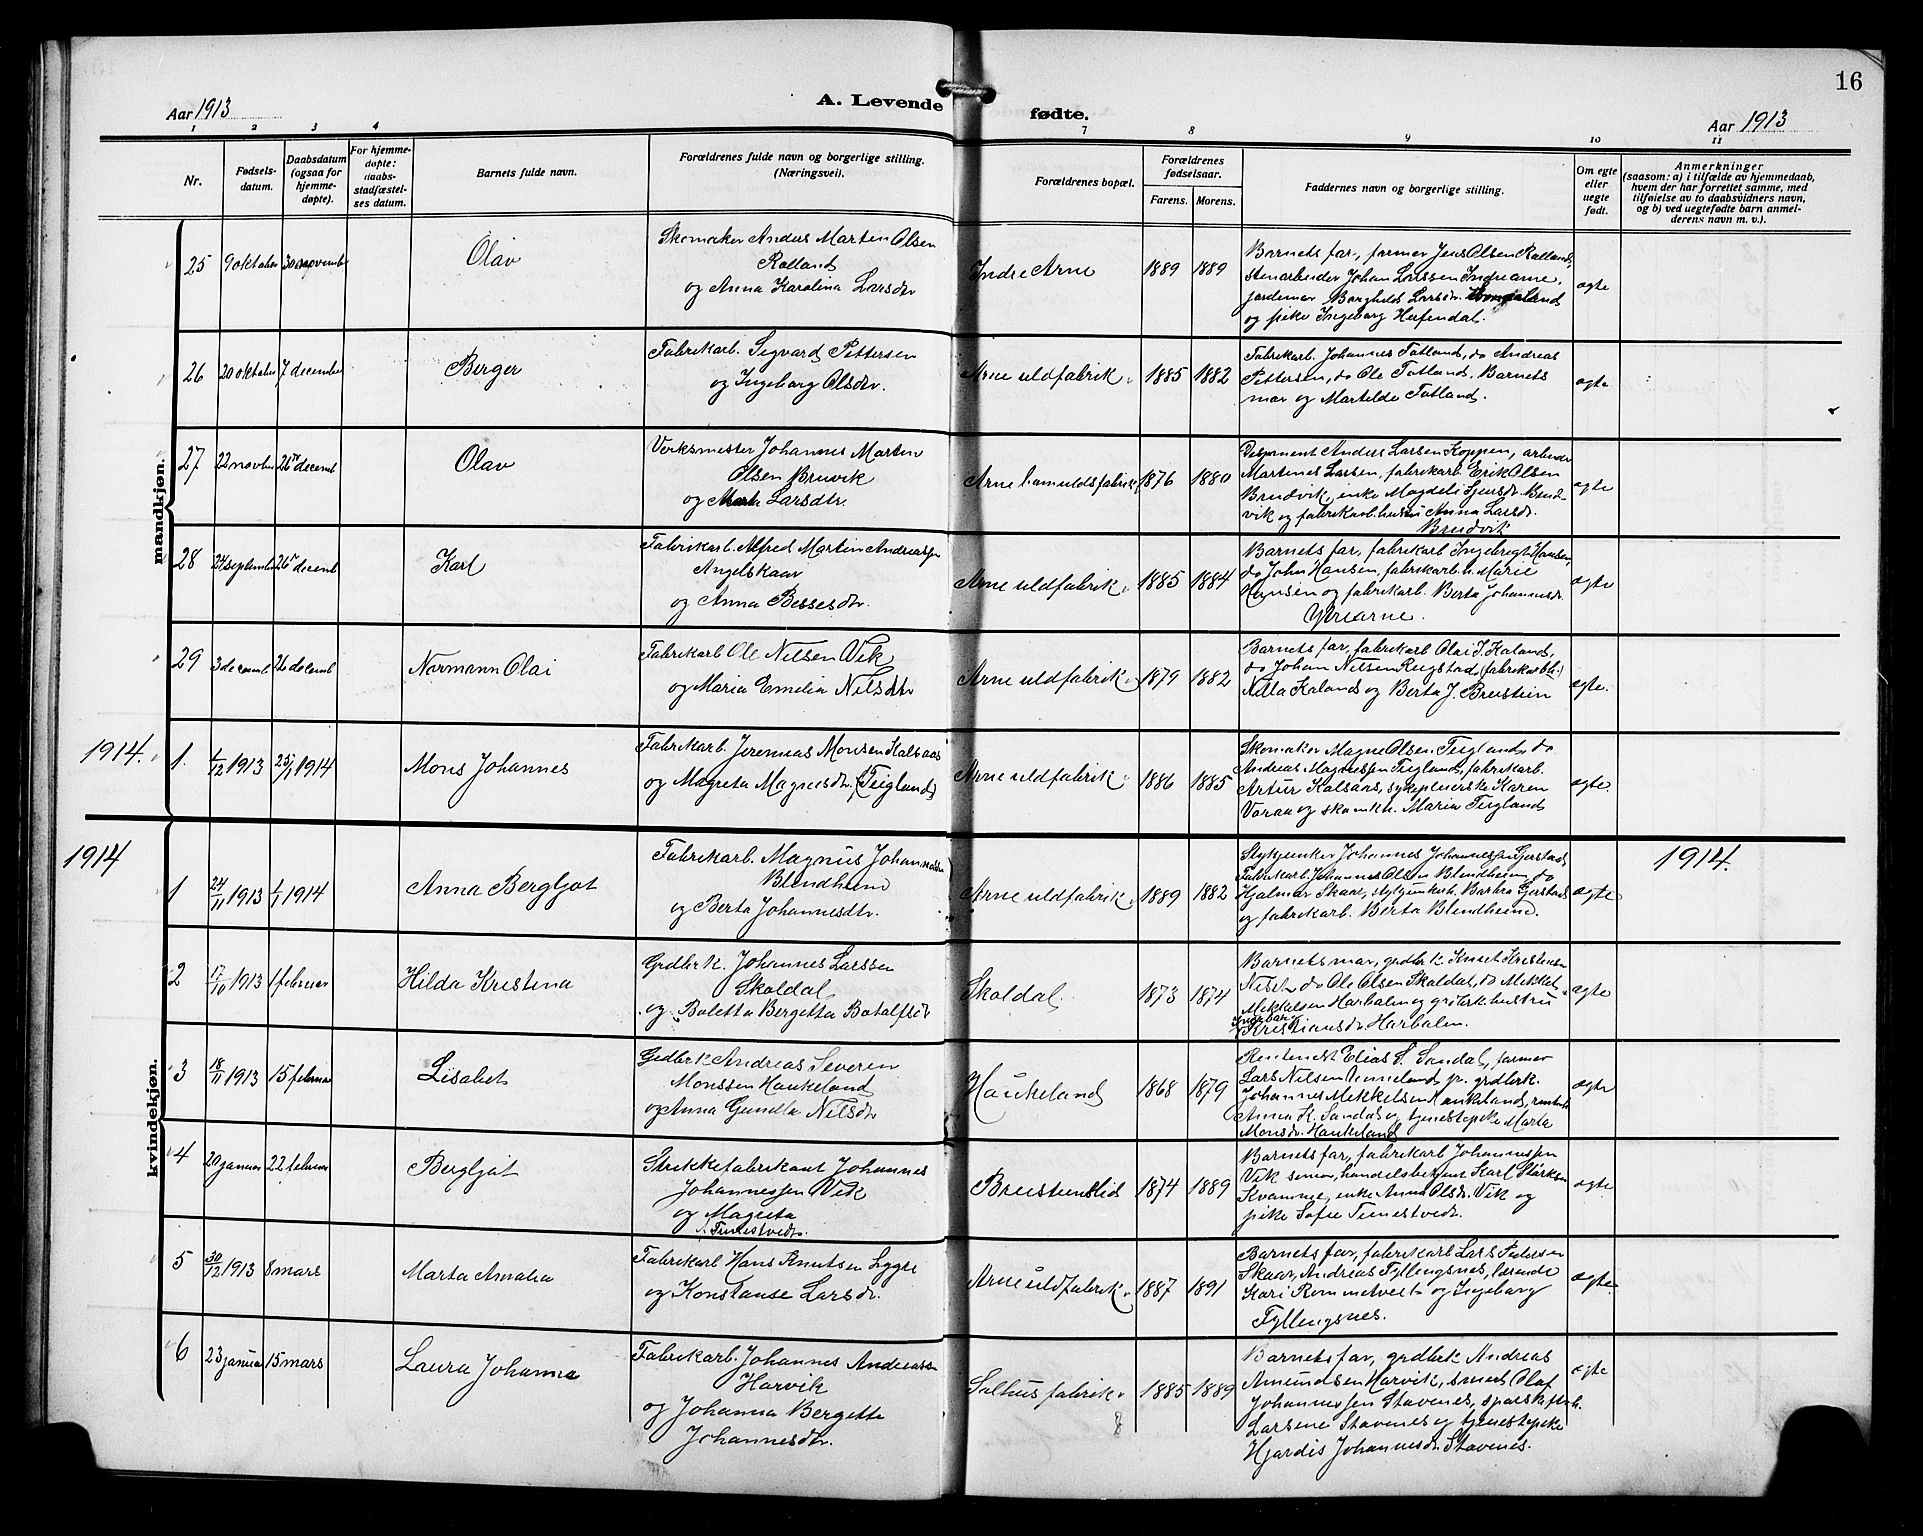 16
Aar 1913
A. Levende
fødte.
Aar 1913
1 2 3 4 7 8 9 10 11
Nr.
Fødsels-
datum.
Daabsdatum
(ogsaa for
hjemme-
døpte).
For hjemme-
døpte:
daabs-
stadfæstel-
ses datum.
Barnets fulde navn.
Forældrenes fulde navn og borgerlige stilling.
(Næringsvei).
Forældrenes bopæl.
Forældrenes
fødselsaar.
Farens. Morens.
Faddernes navn og borgerlige stilling.
Om egte
eller
uegte
født.
Anmerkninger
(saasom: a) i tilfælde av hjemmedaab,
hvem der har forrettet samme, med
tilføielse av to daabsvidners navn,
og b) ved uegtefødte barn anmel-
derens navn m. v.).
mandkjøn.
25 9 oktober 30 november
Olav
Skomaker Anders Martin Olsen
Rolland
og Anna Karolina Larsdtr
Indre Arne
1889 1889
Barnets far, farmor Jens Olsen Rolland,
stenarbeider Johan Larssen Indrearne,
jordemor Borghild Larsdr.
og pike Ingeborg Hefendal.
egte
26 20 oktober 7 december
Berger
Fabrikarb. Sigvard Pettersen
og Ingeborg Olsdtr.
Arne uldfabrik
1885 1882
Fabrikarb. Johannes Totland, do Andreas
Pettersen, do Ole Totland, Barnets
mor og Martilde Totland.
egte
27 22 novbr 26 decemb
Olav
Verksmester Johannes Martin
Olsen Bruvik
og Marta Larsdtr.
Arne bomuldsfabrik
1876 1880
Disponent Anders Larsen Koppen, arbeider
Martines Larsen, fabrikarb. Erik Olsen
Brudvik, enke Magdeli Sjursdr. Brud-
vik og fabrikarb. hustru Anna Larsdr.
Brudvik
egte
28 24 septemb 26 decemb
Karl
Fabrikarb. Alfred Martin Andreassen
Angelskaar
og Anna Bessesdtr.
Arne uldfabrik
1885 1884
Barnets far, fabrikarb Ingebrigt Hansen,
do John Hansen, fabrikarb. h. Marie
Hansen og fabrikarb. Berta Johannesdr.
Ytrearne.
egte
29 3 decemb 26 decemb
Normann Olai
Fabrikarb Ole Nilsen Vik
og Maria Emelia Nilsdtr
Arne uldfabrik
1879 1882
Barnets far, fabrikarb Olai J. Kaland,
do Johan Nilsen Rugstad, (fabrikarb.h.)
Kaland og Berta J. Breistein
egte.
1914.
1. 1/12 1913 25/1 1914
Mons Johannes
Fabrikarb. Jeremias Monsen Kalsaas
og Magreta Magnesdtr. (Teigland)
Arne uldfabrik
1886 1885
Skomaker Magne Olsen Teigland, do
Andreas Magnessen Teigland, fabrikarb.
Artur Kalsaas, sykepleierske Karen
Voraa og skomk.h. Maria Teigland
egte
1914
1914.
kvindekjøn.
1 24/11 1913 1/1 1914
Anna Bergljot
Fabrikarb. Magnus Johannessen
Blendheim
og Berta Johannesdtr.
Arne uldfabrik
1889 1882
Johannes Johannessen Gjerstad
Fabrikarb. Johannes Olsen Blendheim, do
Hjalmar Skaar, Barbra Gjerstad
og fabrikarb. Berta Blendheim.
egte
2 17/10 1913 1 februar
Hilda Kristina
Grdbrk. Johannes Larssen
Skoldal
og Boletta Bergetta Botolfsdr
Skoldal
1873 1874
Barnets mor, grdbrk. Knut Kristensen
do Ole Olsen Skoldal, do Mekkel
Mekkelsen Harbalen og grdbrk. hustru
Ingeborg
Kristiansdr Harbalen.
egte
3 18/11 1913 15 februar
Lisabet
Grdbrk Andreas Severin
Monssen Haukeland
og Anna Gundla Nilsdtr
Haukeland
1868 1879
Rentenist Elias S. Sandal, farmor
Lars Nilsen Unneland, grdbrk.
Johannes Mekkelsen Haukeland,
Anna H. Sandal og tjenestepike Marta
Monsdr. Haukeland
egte
4 20 januar 22 februar
Bergljot
Strikkefabrikant Johannes
Johannessen Vik
og Magreta
Timestvedt.
Breistenslid
1874 1889
Barnets far, fabrikarb Johannessen
Vik senior, handelsbetjent Karl Størksen
Kvamme, enke Anna Olsdr. Vik og
pike Sofie Timestvedt.
egte
5 30/12 1913 8 mars
Marta Amalia
Fabrikarb Hans Knutsen Lygre
og Konstanse Larsdr.
Arne uldfabrik
1887 1891
Barnets far, fabrikarb Lars Pedersen
Skaar, Andreas Fyllingsnes, lærerinde
Kari Rommetveit og Ingeborg
Fyllingsnes.
egte
6 23 januar 15 mars
Laura Johanna
Fabrikarb. Johannes Andreassen
Harvik
og Johanna Bergette
Johannesdtr.
Salhus fabrik
1885 1889
Barnets far, grdbrk Andreas
Amundsen Harvik, smed Olaf
Johannessen Stavenes,
Larsine Stavenes og tjenestepike
Hjørdis Johannesdr. Stavenes.
egte